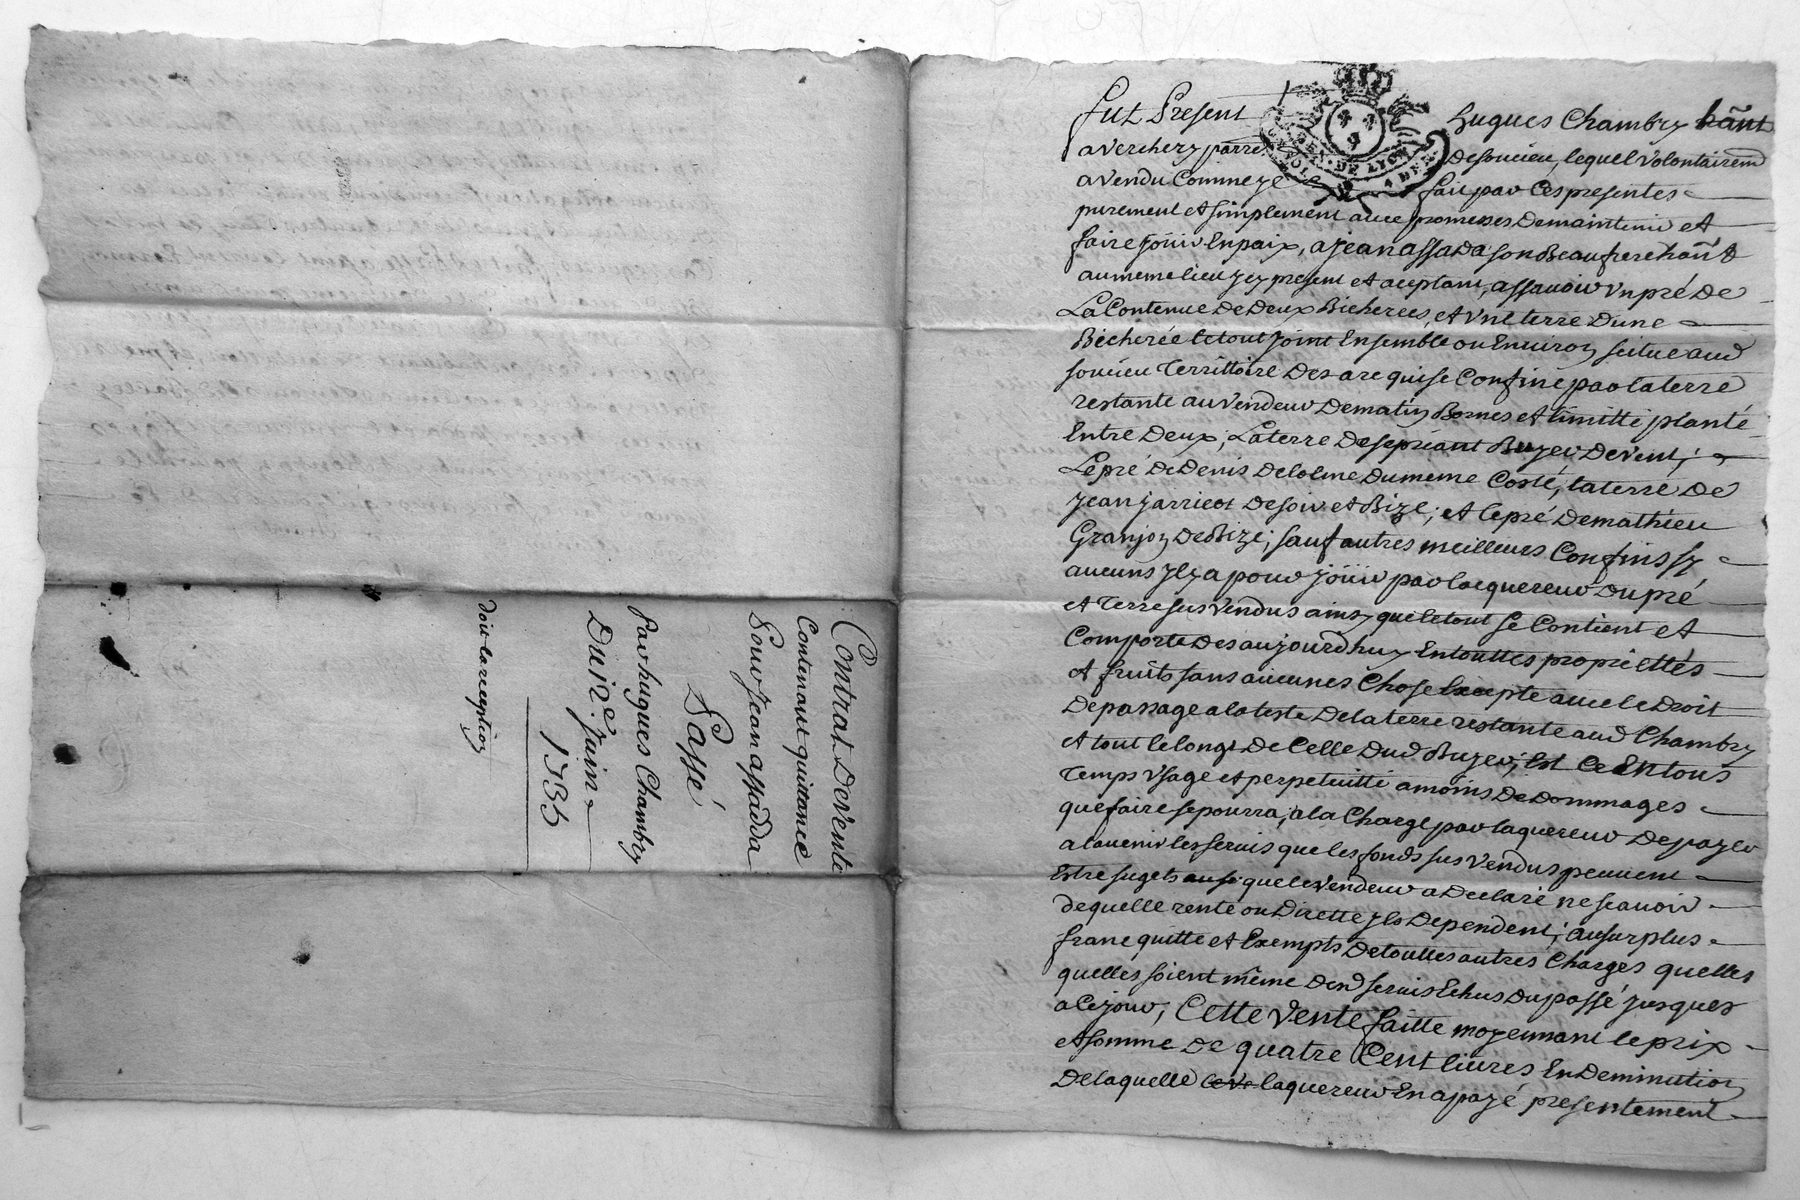 Contrat De Vente
Contenant quittance
Pour Jean assadda
Passé
Par hugues Chambry
Du 12e. Juin
1735
doit la reception
fut Present hugues Chambry hãnt
a Verchery parre de soucieu, lequel Volontairemt
a Vendu Comme ye fait par Ces presentes
purement et simplement avec promesses De maintenir et
faire joüir En paix, a jean assada son Beaufrere hãnt
au meme lieu yey present et aceptant, assavoir Un pré De
La Contenue De Deux Bicherees, et Une terre D'une
Bicherée le tout joint Ensemble ou Environ scitué aud
soucieu Territtoire Des are qui se Confine par la terre
restante au Vendeur De matin Bornes et limitte planté
Entre Deux, La terre De sepriant Buyer De Vent,
Le pré De Denis Delolme Du meme Costé, la terre De
Jean jarricot De soir et Bize; et le pré De mathieu
Granjon De Bize; sauf autres meilleurs Confins sy
aucuns yl y a pour joüir par lacquereur Du pré
et Terre sus Vendus ainsy que le tout se Contient et
Comporte Des aujourdhuy En touttes proprietés
et fruits sans aucunes Chose Excepte avec le Droit
De passage a la teste De la terre restante aud Chambry
et tout le long De Celle Dud Buyer, Est Ce En tous
Temps Usage et perpetuitté a moins De Dommages
que faire se pourra, a la Charge par laquereur De payer
a lavenir les servis que les fonds sus Vendus peuvent
Estre sugets que le Vendeur a Declaré ne scavoir
de quelle rente ou Dirette yls Dependent; au surplus
franc quitte et Exempts De touttes autres Charges quelles
quelles soient même Desd servis Echus Du passé jusques
a Ce jour, Cette Vente faitte moyennant le prix
et somme de quatre Cent livres En Deminution
De laquelle laquereur En a payé presentement